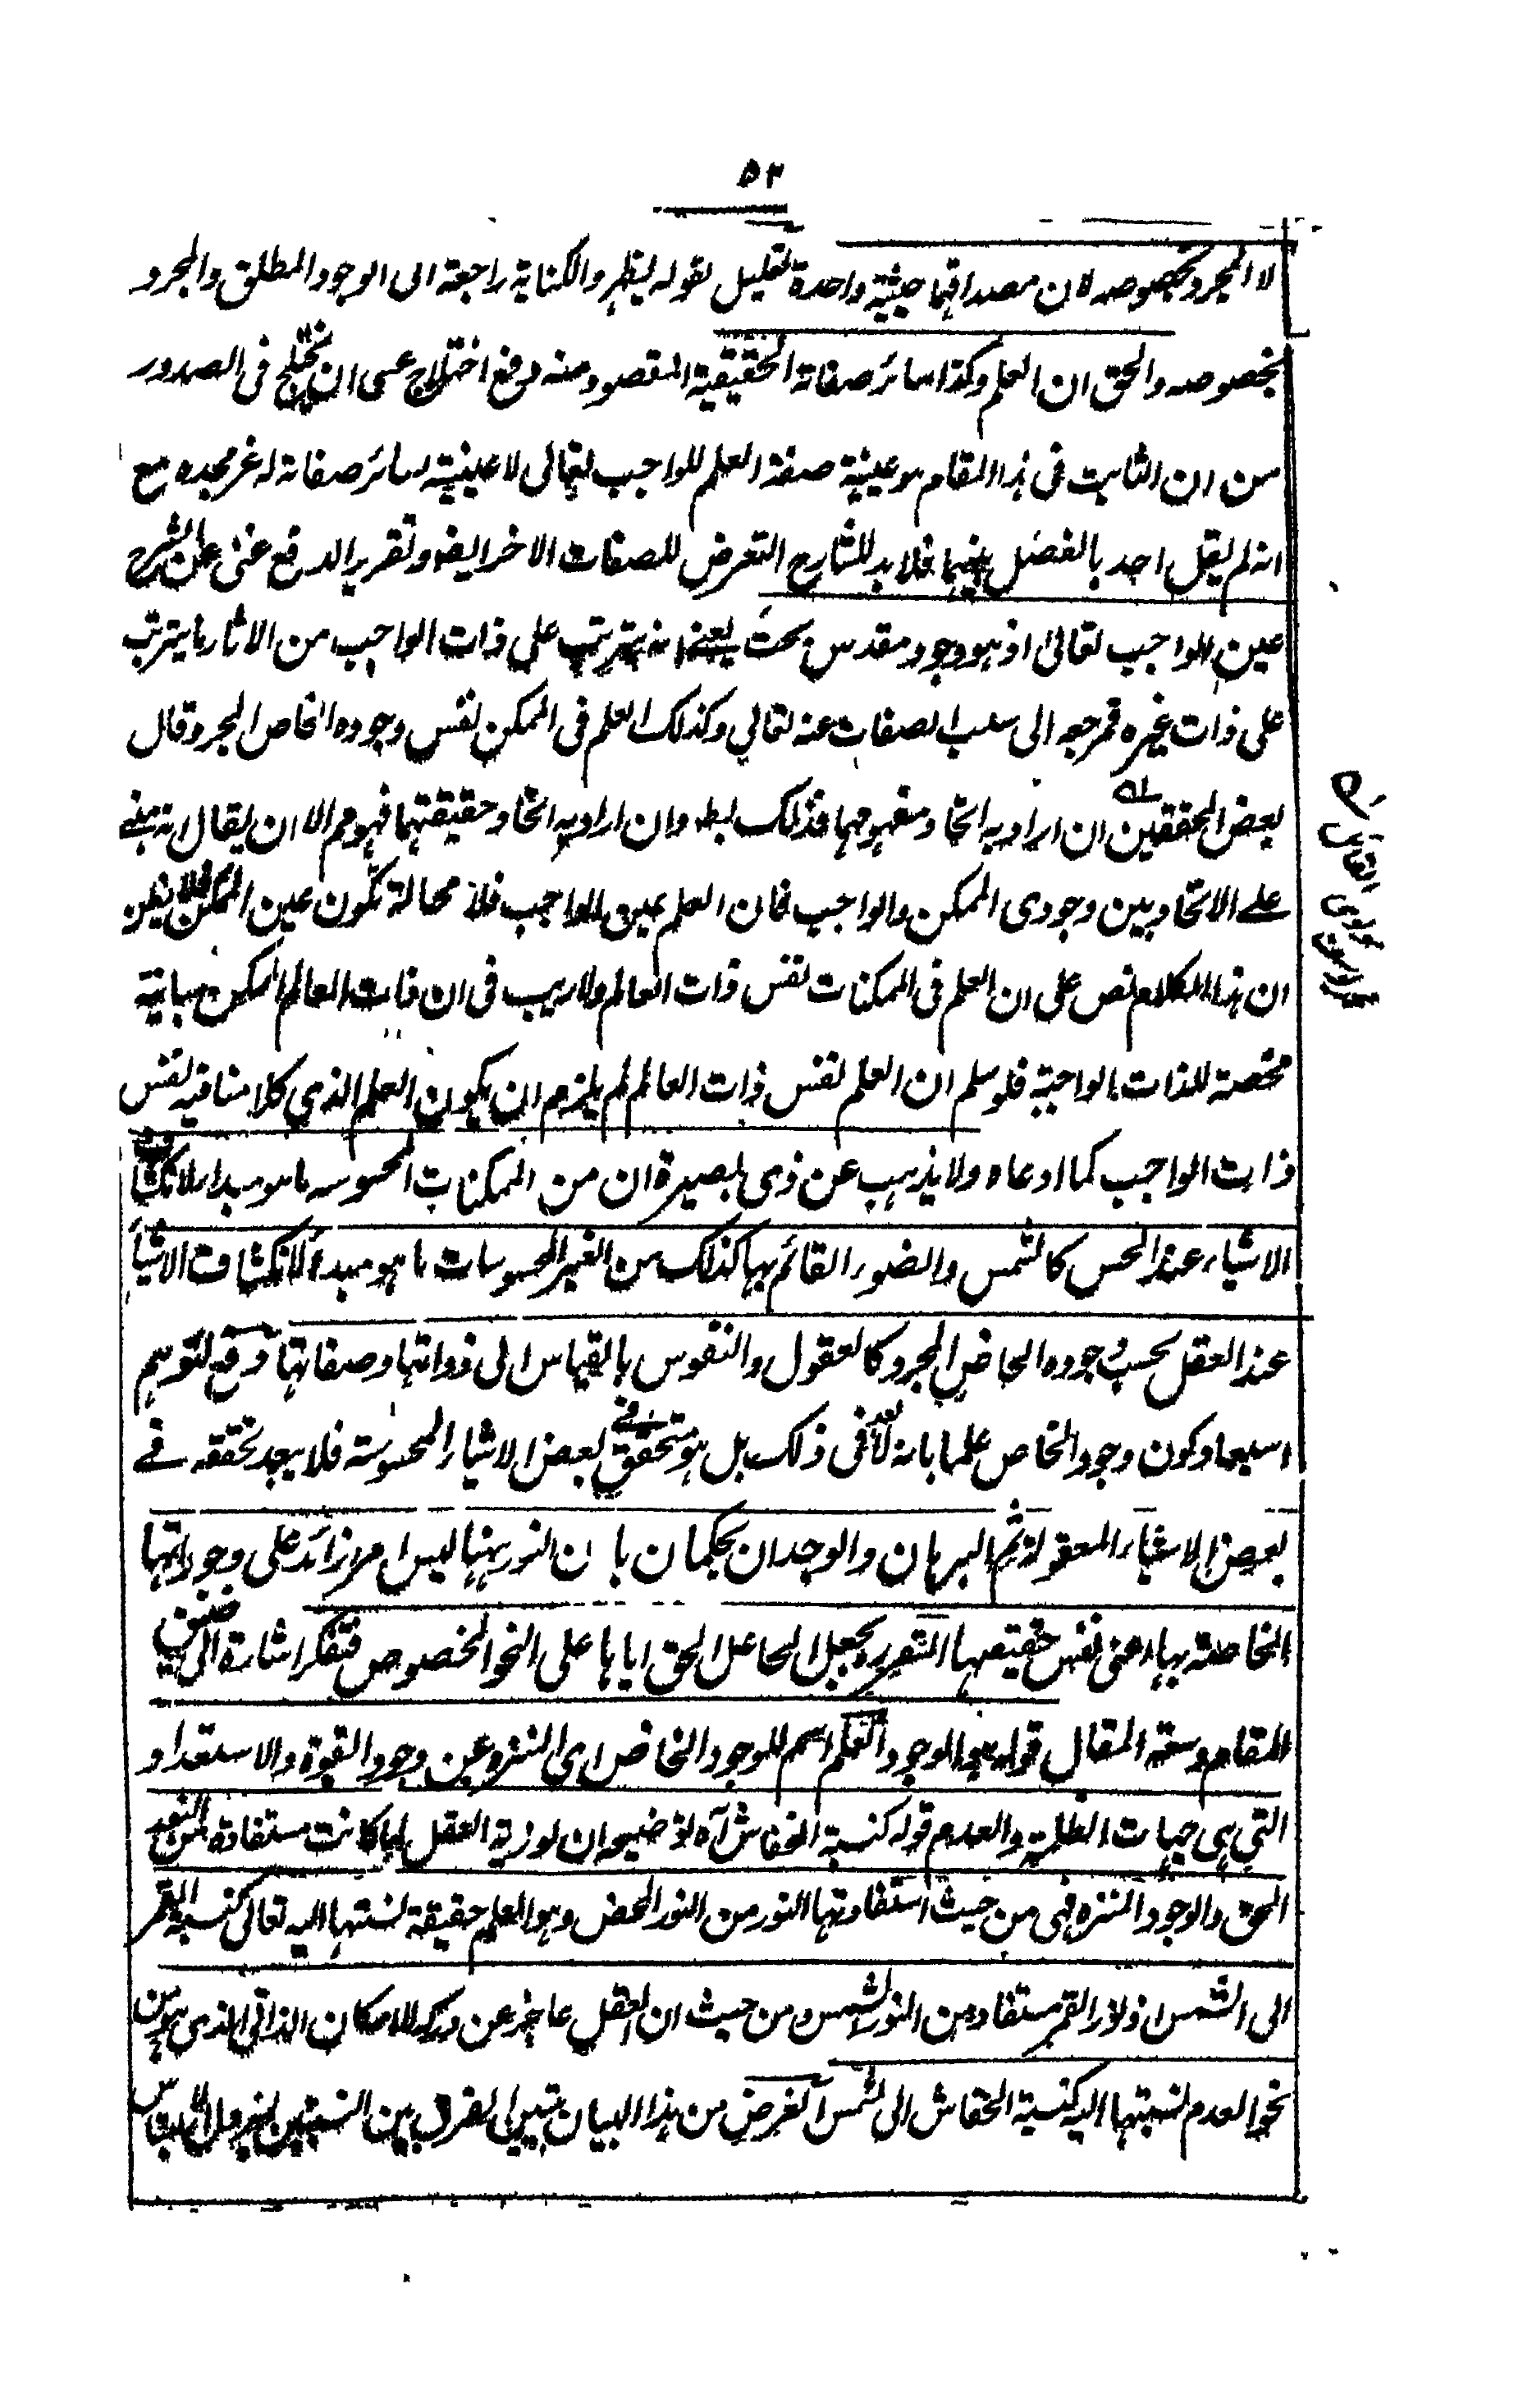 ٥٢
لا المجرد بخصوصه لان مصداقهما حيثية واحدة تعليل لقوله ليظهر والكناية راجعة الى الوجود المطلق والمجرد
بخصوصه والحق ان العلم وكذا سائر صفاته الحقيقية المقصود منه دفع اختلاج عسى ان يختلج فى الصدور
من ان الثابت فى هذا المقام هو عينية صفة العلم للواجب تعالى لا عينية سائر صفاته له عز مجده مع
انه لم يقل احد بالفصل بينهما فلا بد للشارح التعرض للصفات الاخر ايضا وتقرير الدفع غنى عن الشرح
عين الواجب تعالى اذ هو وجود مقدس بحت يعنى انه يترتب على ذات الواجب من الاثار ما يترتب
على ذات غيره فمرجعه الى سلب الصفات عنه تعالى وكذلك العلم فى الممكن نفس وجوده الخاص المجرد قال
بعض المحققين ان اراد به اتحاد مفهومهما فذلك بط وان اراد به اتحاد حقيقتهما فهو مم الا ان يقال انه مبنى
على الاتحاد بين وجودى الممكن والواجب فان العلم عين الواجب فلا محالة تكون عين الممكن فلا يظن
ان هذا الكلام نص على ان العلم فى الممكنات نفس ذات العالم ولا ريب فى ان ذات العالم الممكن مباينة
مختصة للذات الواجبة فلو سلم ان العلم نفس ذات العالم لم يلزم ان يكون العلم الذي كلامنا فيه نفس
ذات الواجب كما ادعاه ولا يذهب عن ذى بصيرة ان من الممكنات المحسوسه ما هو مبدء لانكشاف
الاشياء عند الحس كالشمس والضوء القائم بها كذلك من الغير المحسوسات ما هو مبدء لانكشاف الاشياء
عند العقل بحسب وجوده الخاص المجرد كالعقول والنفوس بالقياس الى ذواتها وصفاتها دفع لتوهم
استبعاد كون وجود الخاص علما بانه لا بعد فى ذلك بل هو متحقق فى بعض الاشياء المحسوسة فلا يبعد تحققه فى
بعض الاشياء المعقولة ثم البرهان والوجدان يحكمان بان النور ههنا ليس امر زائد على وجوداتها
الخاصة بها اعنى نفس حقيقتها المتقررة بجعل الجاعل الحق اياها على النحو المخصوص فتفكر اشارة الى ضيق
المقام وسعة المقال قوله هو الوجود العلم اسم للوجود الخاص اى المنزه عن وجود القوة والاستعداد
التى هى جهات الظلمة والعدم قوله كنسبة الخفاش آه توضيحه ان نورية العقل لما كانت مستفادة من النور
الحق والوجود المنزه فهى من حيث استفادتها النور من النور المحض وهو العلم حقيقة نسبتها اليه تعالى كنسبة القمر
الى الشمس اذ نور القمر مستفاد من النور الشمس ومن حيث ان العقل عاجز عن درك الامكان الذاتى الذى هو من
نحو العدم نسبتها اليه كنسبة الخفاش الى الشمس الغرض من هذا البيان تبيين الفرق بين النسبتين